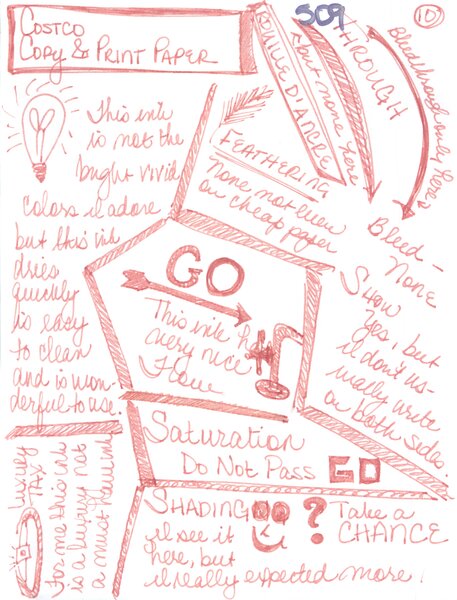 COSTCO
COPY & PRINT PAPER
509
10
This ink
is not the
bright vivid
colors I adore
but this ink
dries
quickly
is easy
to clean
and is won-
derful to use.
FEATHERING
None not even
on cheap paper
but none here
THROUGH
Bleedthrough only here
Bleed-
None
Show
Yes, but
I don't us-
ually write
on both sides.
GO
This ink has
very nice
Flow
Saturation
Do Not Pass GO
LUXURY
TAX
For me this ink
is a luxury not
a must have ink
SHADING ?
I see it
here, but
I really expected more!
Take a
CHANCE